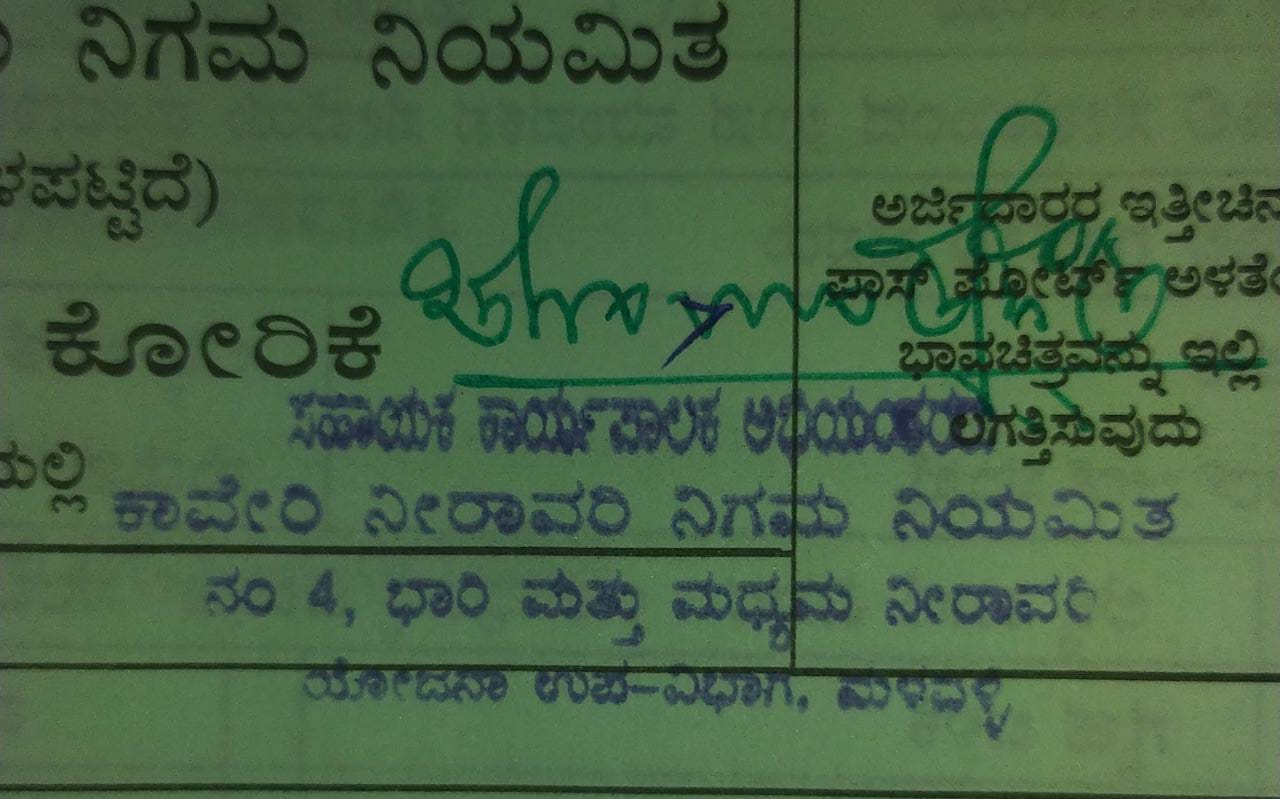 ನಿಗಮ ನಿಯಮಿತ
ಳಪಟ್ಟಿದೆ)
ಕೋರಿಕೆ
ಯಲ್ಲಿ
ಅರ್ಜಿದಾರರ ಇತ್ತೀಚಿನ
ಪಾಸ್ ಪೋರ್ಟ್ ಅಳತೆಯ
ಭಾವಚಿತ್ರವನ್ನು ಇಲ್ಲಿ
ಲಗತ್ತಿಸುವುದು
ಸಹಾಯಕ ಕಾರ್ಯಪಾಲಕ ಅಭಿಯಂತರರು
ಕಾವೇರಿ ನೀರಾವರಿ ನಿಗಮ ನಿಯಮಿತ
ನಂ 4, ಭಾರಿ ಮತ್ತು ಮಧ್ಯಮ ನೀರಾವರಿ
ಯೋಜನಾ ಉಪ-ವಿಭಾಗ. ಮಳವಳ್ಳಿ